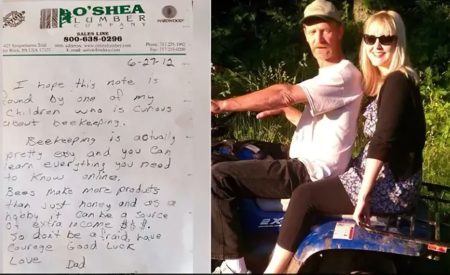 O'SHEA
LUMBER
COMPANY
SALES LINE
800-638-0296
6-27-12
I hope this note is
found by one of my
children who is curious
about beekeeping.
Beekeeping is actually
pretty easy and you can
learn everything you need
to know online.
Bees make more products
than just honey and as a
hobby it can be a source
of extra income $$$.
So don't be afraid, have
courage Good Luck
Love Dad